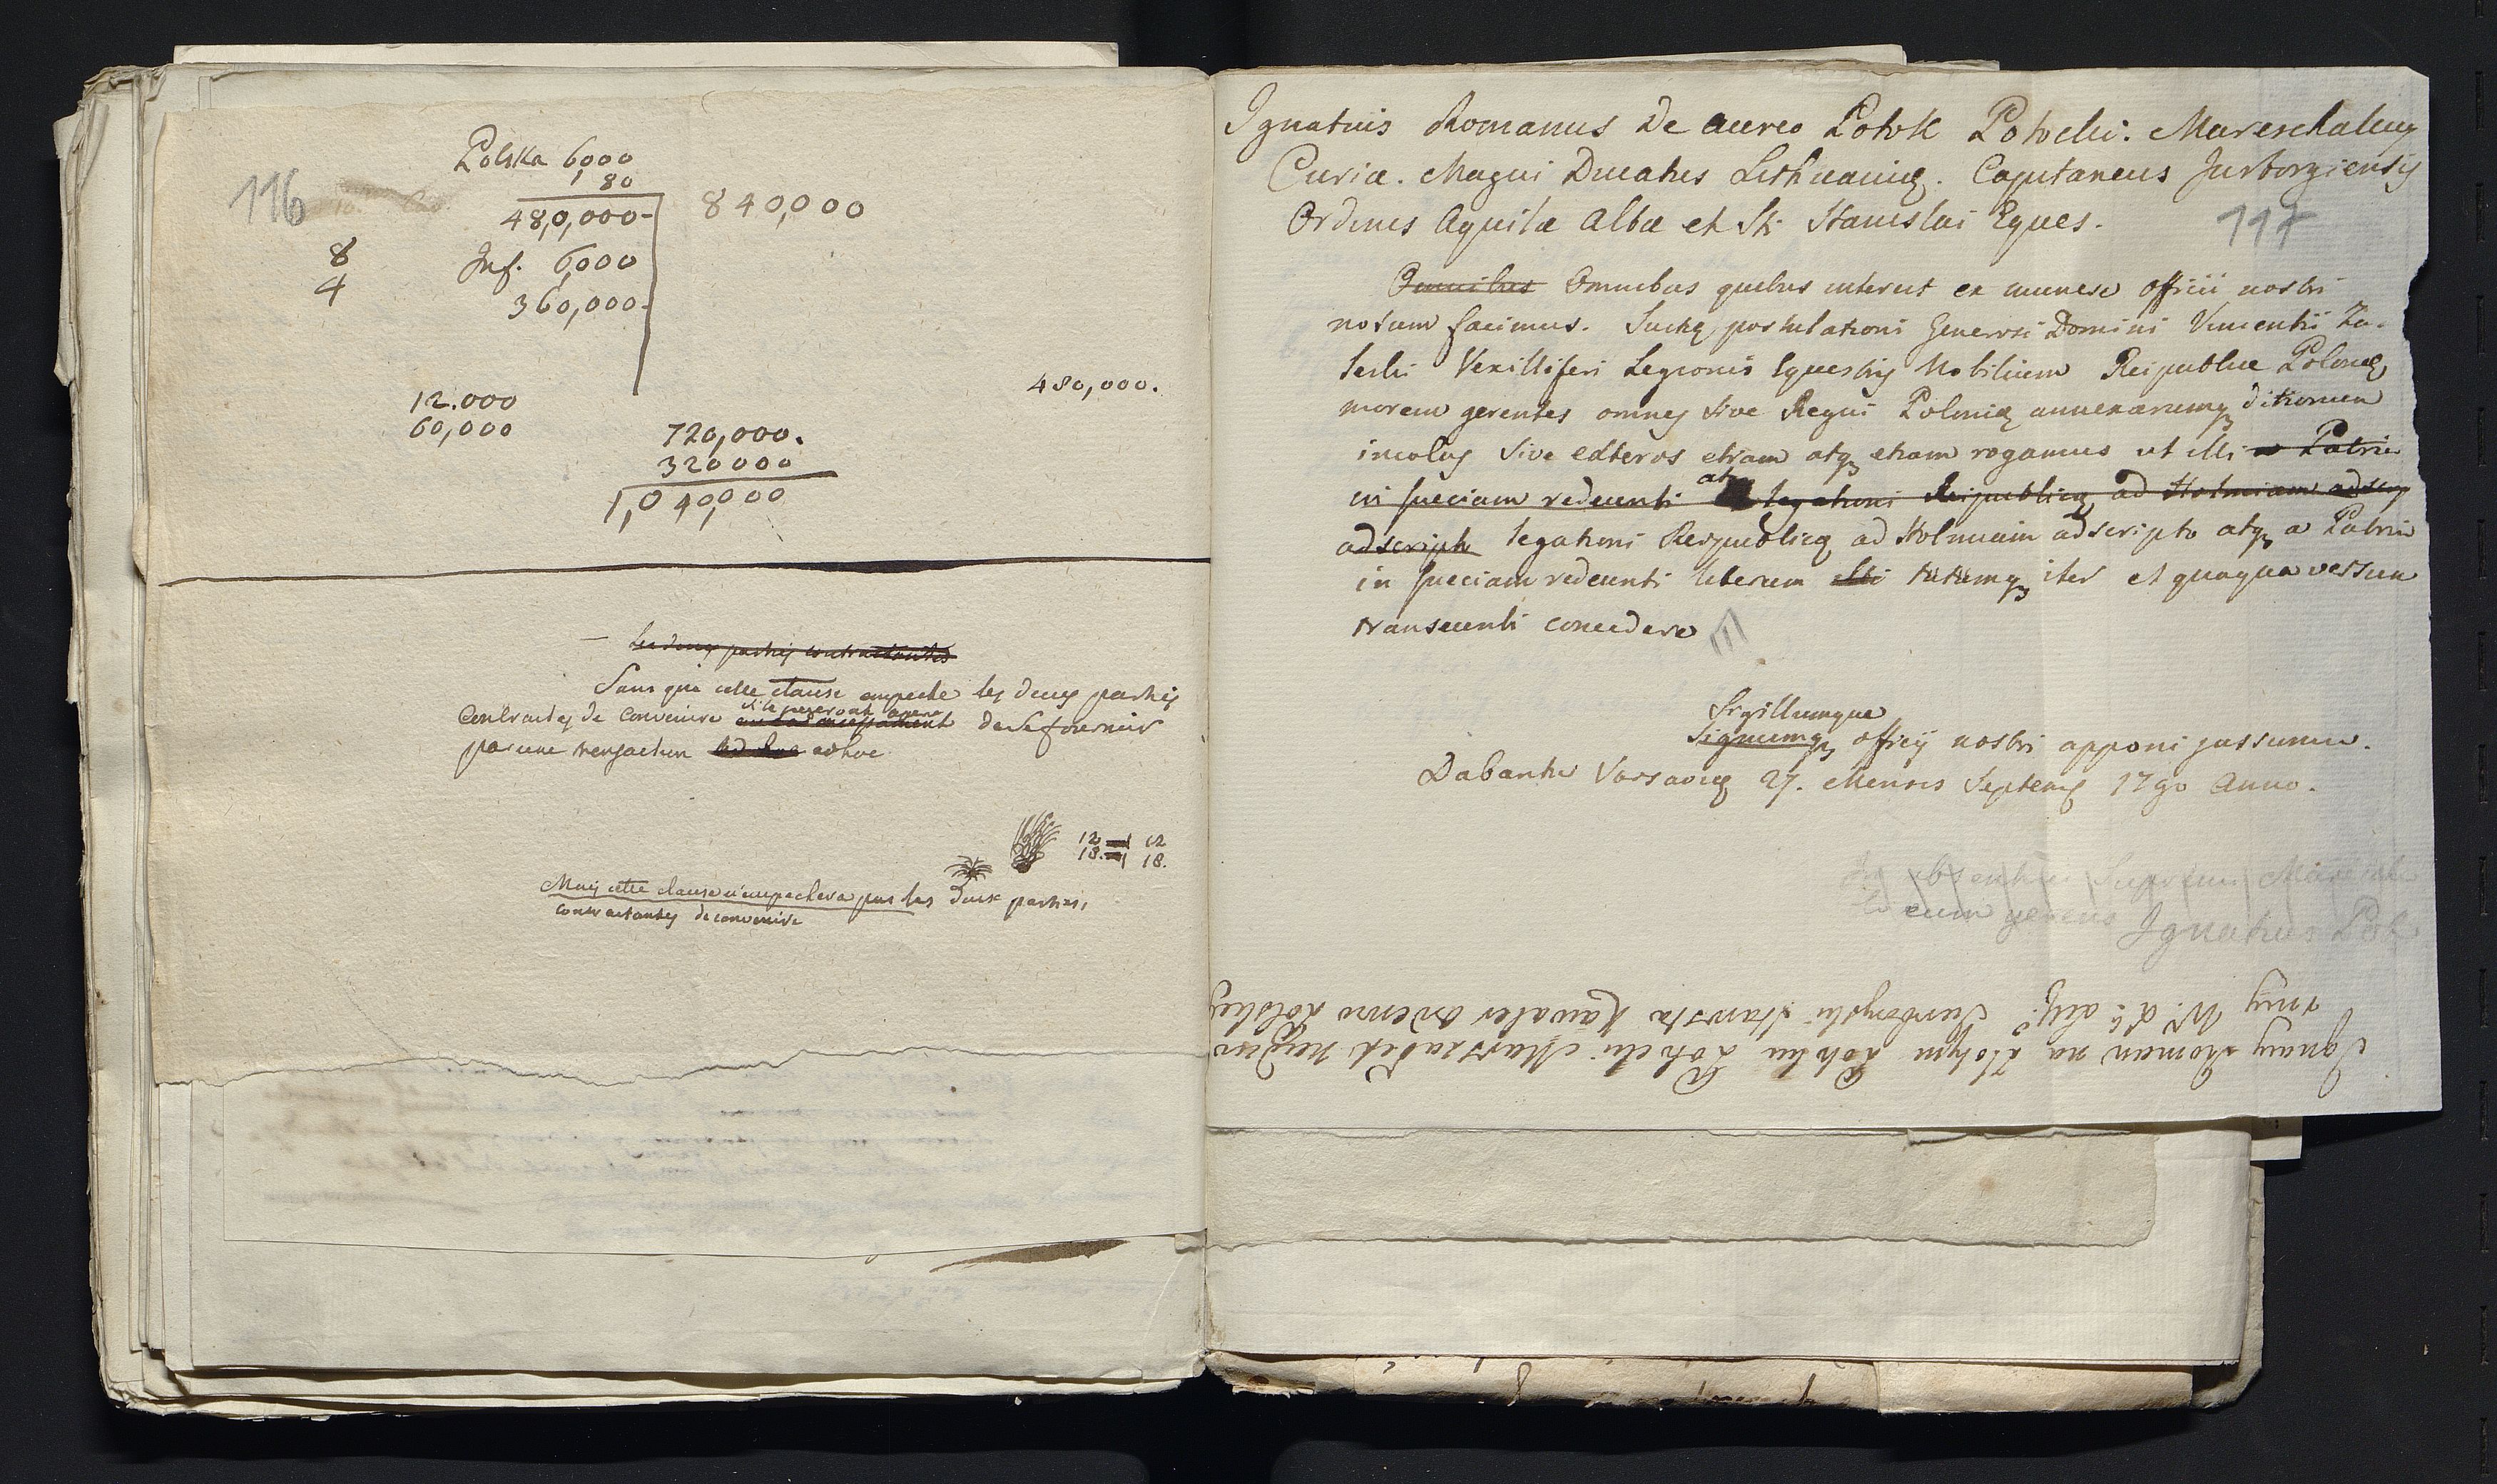 116
Polska 6,000
180
480,000-
840,000
8
4
Inf. 6,000
360,000-
480,000.
12.000
60,000
720,000.
320000
1,040,000
— Les deux parties contractantes
Sans que cette clause empeche les deux parties
Contractes de convenir de se fournir
par une transaction ad hoc ad hoc
12 12
18. 18.
Mais cette clause n'empechera pas les deux parties,
contractantes de convenir
Ignatius Romanus De aureo Potok Potocki. Mareschalcus
Curiæ. Magni Ducatus Lithuaniæ. Capitaneus Jurborgiensis
Ordinis Aquilæ Albæ et Sti Stanislai Eques.
117
Omnibus Omnibus quibus interest ex munere officii nostri
notum facimus. Justæ postulationi Generosi Domini Vincentii Za-
leski Vexilliferi Legionis Equestris Nobilium Reipublicæ Polonæ
morem gerentes omnes sive Regni Poloniæ annexarumq ditionum
incolas sive exteros etiam atq etiam rogamus ut illi a Patria
in Sueciam redeunti atq legationi Reipublicæ ad Holmiam adscrip
adscripto legationi Reipublicæ ad Holmiam adscripto atq a Patria
in Sueciam redeunti liberum tutumq iter et quaqua versum
transeunti concedere
Sigillumque
Signumq officij nostri apponi jussimus.
Dabantur Varsaviæ 27. Mensis Septembris 1790 Anno.
In absentia Supremi Maresch
locum gerens Ignatius Pot
Ignacy Roman na Złotym Potoku Potocki Marszałek Nadwor
ny W. X. Litt. Jurborgski Starosta Kawaler Orderow Polskich